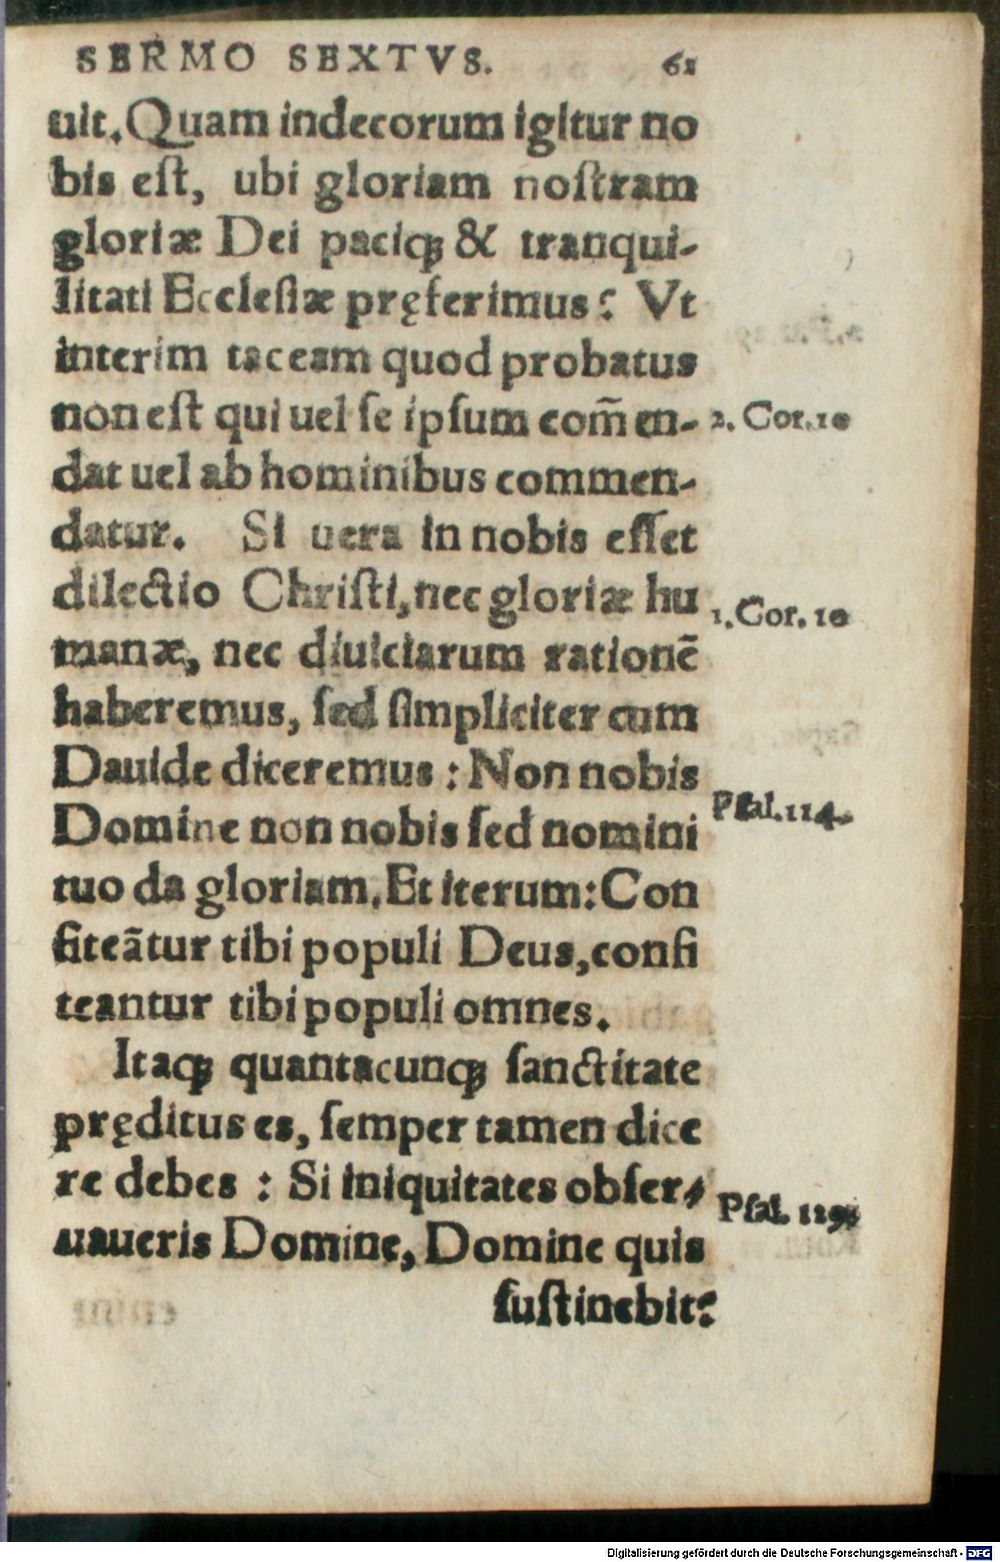 SERMO SEXTVS. 61
uit. Quam indecorum igitur no
bis eſt, ubi gloriam noſtram
gloriæ Dei paciq́; & tranqui-
litati Eccleſiæ pręferimus? Vt
interim taceam quod probatus
non eſt qui uel ſe ipſum com̃en-
2. Cor. 10
dat uel ab hominibus commen-
datur. Si uera in nobis eſſet
dilectio Chriſti, nec gloriæ hu
1. Cor. 10
manæ, nec diuiciarum rationẽ
haberemus, ſed ſimpliciter cum
Dauide diceremus: Non nobis
Domine non nobis ſed nomini
Pſal. 114.
tuo da gloriam. Et iterum: Con
fiteãtur tibi populi Deus, confi
teantur tibi populi omnes.
Itaq; quantacunq; ſanctitate
pręditus es, ſemper tamen dice
re debes: Si iniquitates obſer-
Pſal. 129.
uaueris Domine, Domine quis
ſuſtinebit?
Digitalisierung gefördert durch die Deutsche Forschungsgemeinschaft - DFG